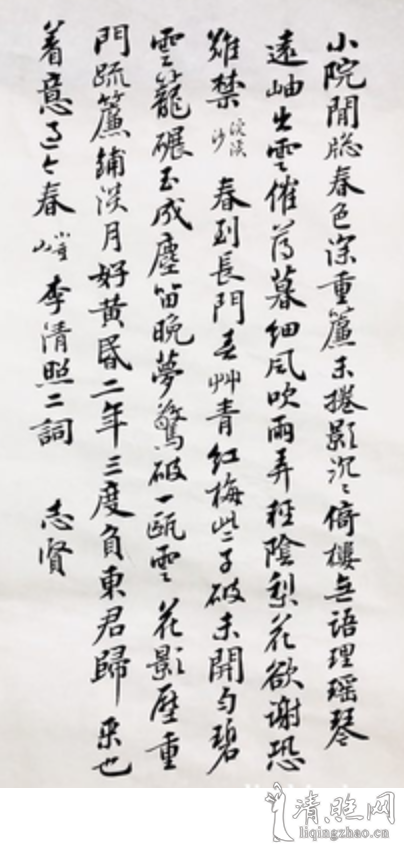 小院閒牕春色深重簾未捲影沉〻倚樓無語理瑤琴
遠岫出雲催薄暮細風吹雨弄輕陰梨花欲謝恐
難禁 浣溪沙 春到長門春艸青紅梅些子破未開勻碧
雲籠碾玉成塵留晚夢驚破一甌雲 花影壓重
門疏簾鋪淡月好黃昏二年三度負東君歸來也
着意過今春 小重山 李清照二詞 志賢
清照网
liqingzhao.cn